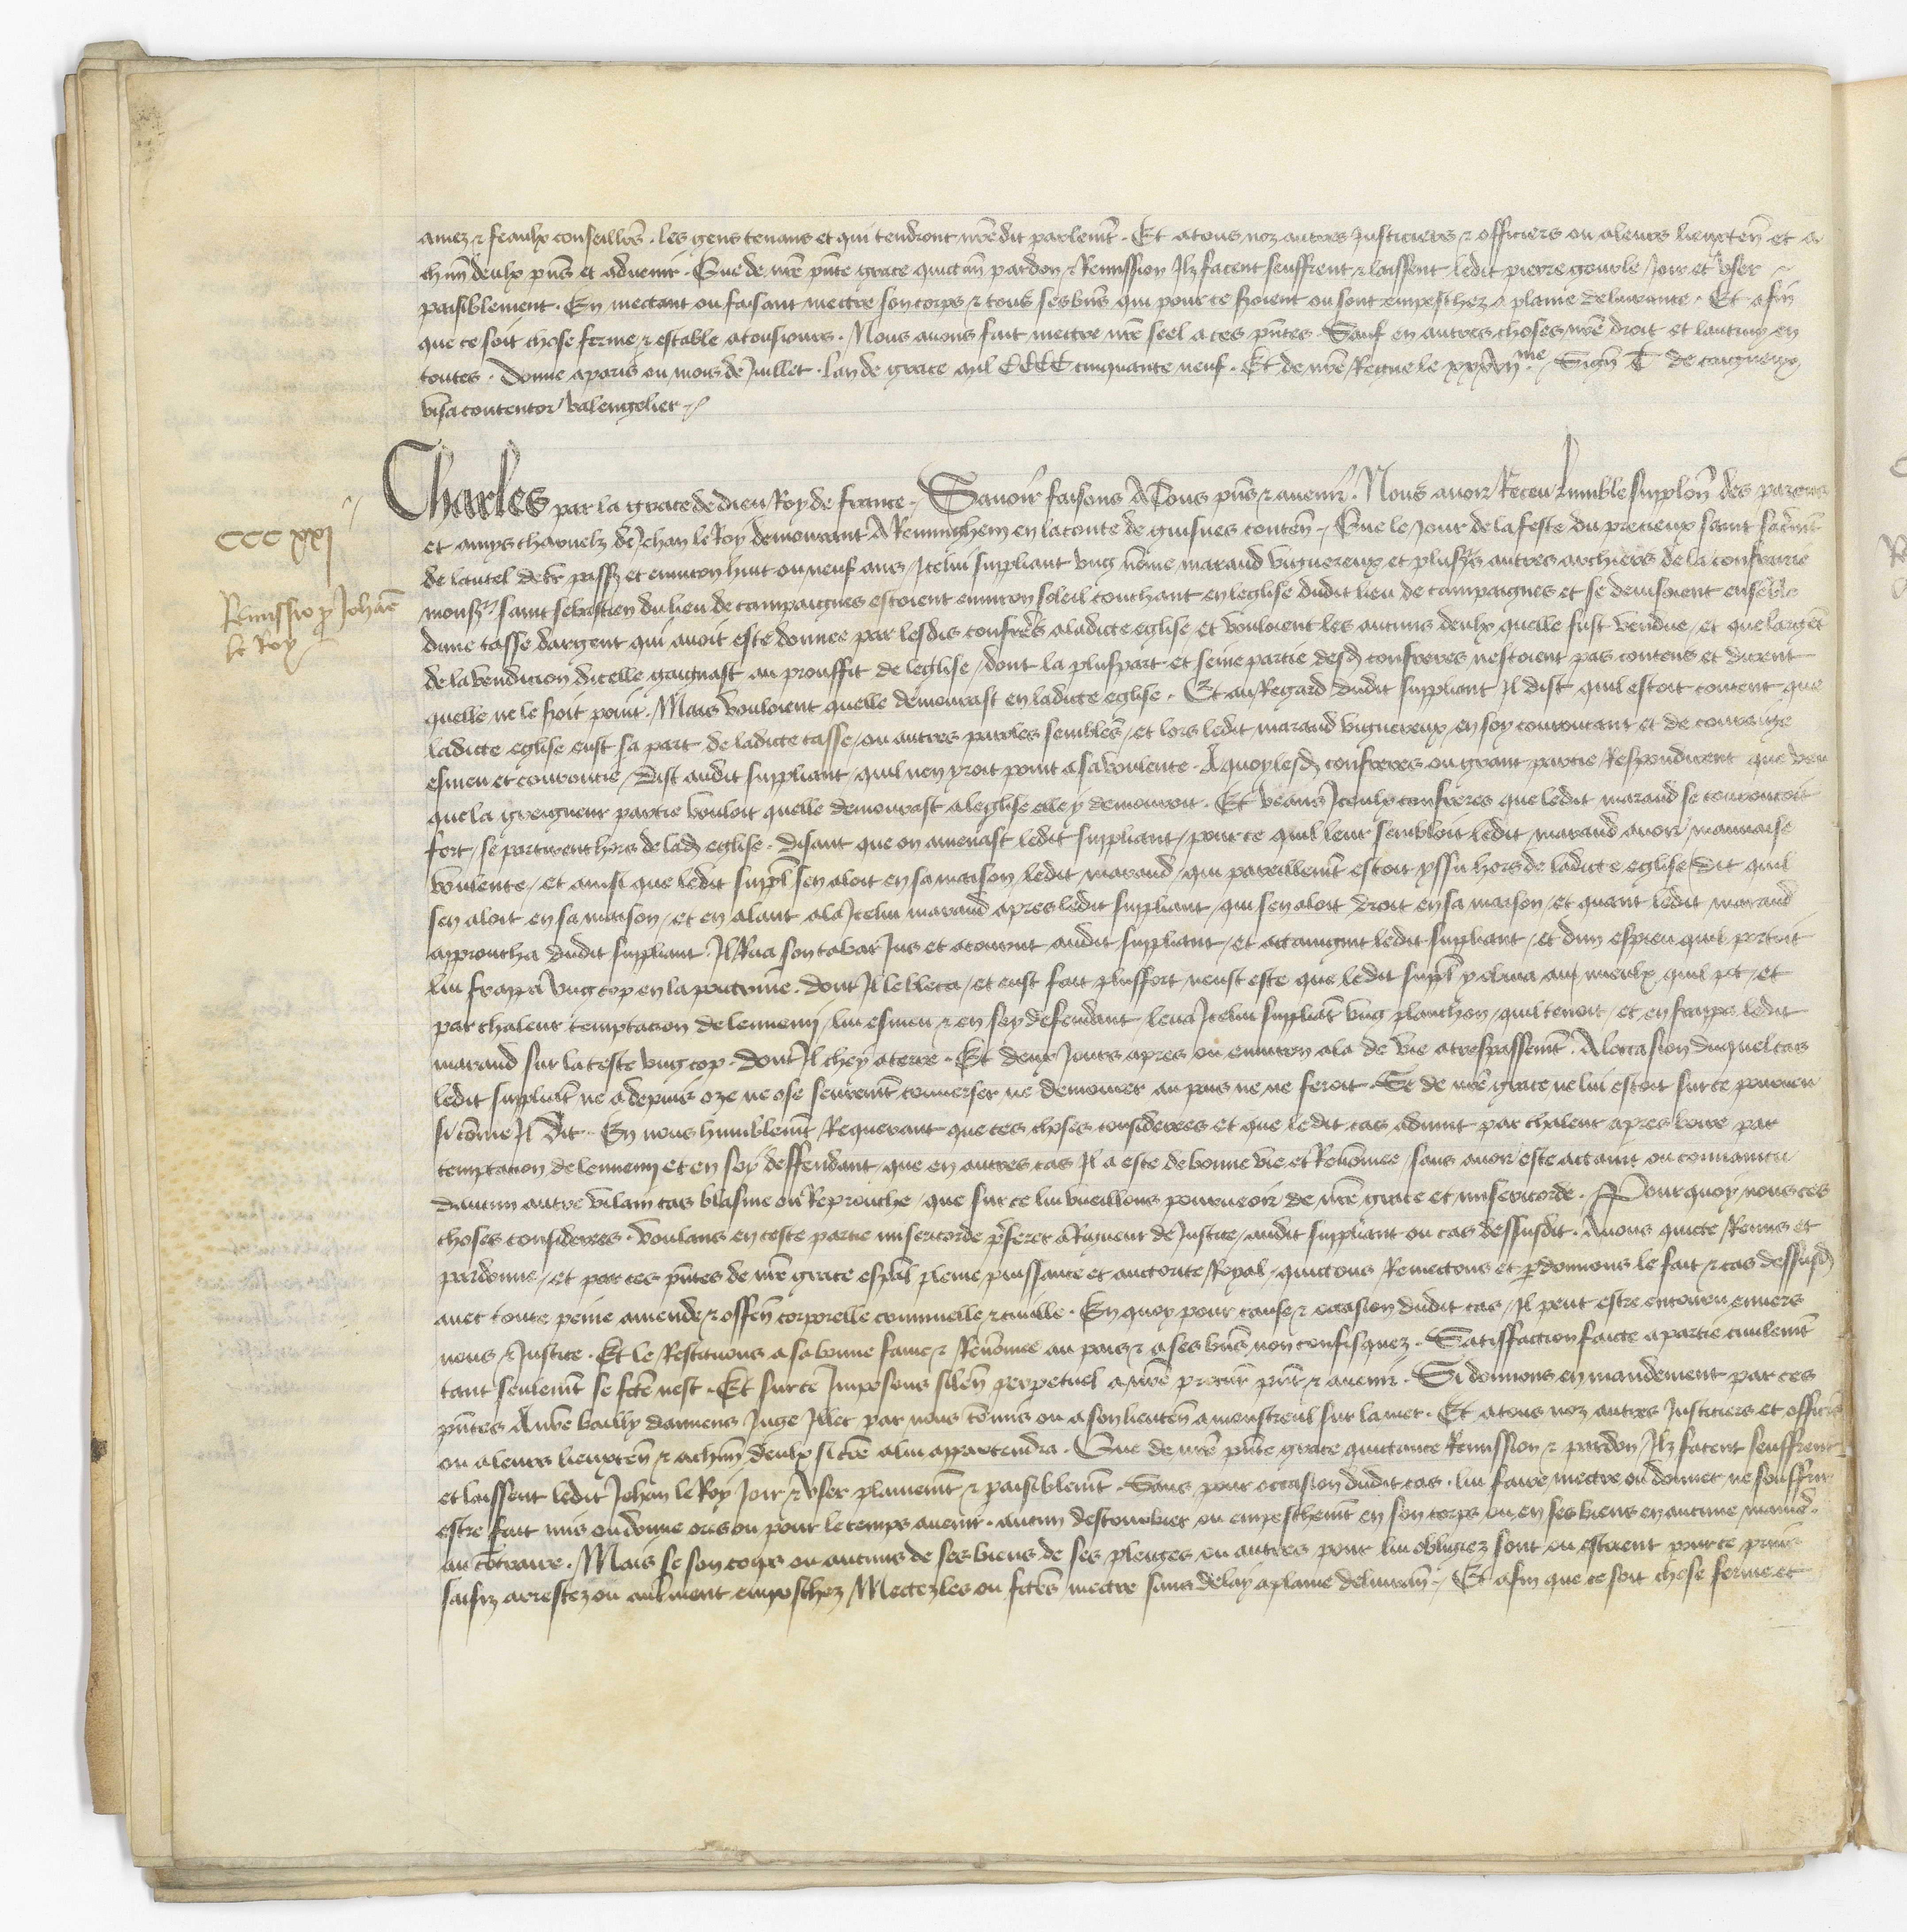 amez & feaulx conseillrs . les gens tenans et qui tendront nrēdit parlemt . Et a tous noz autres justiciers & officiers ou a leurs lieuxten̄ et a
chūn deulx pn̄s et advenir . Que de nrē pn̄te grace quictan̄ pardon & Remission Ilz facent seuffrent & laissent ledit pierre gourle / Joir et user
paisiblement . En mectant ou faisant mectre son corps & tous ses bn̄s qui pour ce seroient ou sont empeschez a plaine delivrance . Et afin
que ce soit chose ferme & estable a tousiours . Nous avons fait mectre nrē seel a ces pn̄tes . Sauf en autres choses nrē droit et lautruy en
toutes . Donne a paris ou mois de Juillet . lan de grace mil CCCC cinquante neuf . Et de nrē Regne le xxxvii me . Sign̄ T de
visa contentor valengelier
Charles par la grace de dieu Roy de france . Savoir faisons A Tous pn̄s & avenir . Nous avoir Receu lumble supplon̄ des parens
et amys charnelz de Jehan le Roy demourant A Reminghem en la conte de guisnes conten̄ . Que le Jour de la feste du precieux saint sacremt
de lautel derr passe et environ huit ou neuf ans / Icelui suppliant ung nōme marand viguereux et plusrs autres archiers de la confrarie
CCC xxi
Remissio p Johane
le Roy
monsr saint sebastien du lieu de campaignes estoient environ soleil couchant en leglise dudit lieu de campaignes et se devisoient ensēble
dune tasse dargent qui avoit este donnee par lesdis confrers a ladicte eglise et vouloient les aucuns deulx quelle fust vendue / et que largēt
de la vendicion dicelle gaignast au prouffit de leglise / dont la pluspart et seine partie desd confreres nestoient pas contens et dirent
quelle ne le seroit point . Mais vouloient quelle demourast en ladicte eglise . Et au Regard dudit suppliant Il dist quil estoit content que
ladicte eglise eust sa part de ladicte tasse / ou autres paroles semblēs / et lors ledit marand viguereux en soy courroucant et de courraige
esmeu et courroucie / dist audit suppliant / quil nen yroit point a sa voulente . A quoy lesd confreres ou grant partie Respondirent que veu
que la greigneur partie vouloit quelle demourast a leglise elle y demourroit . Et veans Iceulx confreres que ledit marand se courroucoit
fort / se partirent hors de lad eglise . disant que on amenast ledit suppliant / pour ce quil leur sembloit ledit marand avoir mauvaise
voulente / et ainsi que ledit suppl sen aloit en sa maison / ledit marand / qui pareillemt estoit yssu hors de ladicte eglise / dit quil
sen aloit en sa maison / et en alant ala Icelui marand apres ledit suppliant / qui sen aloit droit en sa maison / et quant ledit marand
approucha dudit suppliant . Il Rua son tabar Jus et acourut audit suppliant / et actaingnit ledit suppliant / et dun espieu quil portoit
lui frappa ung cop en la poictrine . dont Il le bleca / et eust fait plus fort neust este que ledit suppl y obvia au mieulx quil pot / et
par chaleur temptacion de lennemi / lui esmeu & en soy defendant leva Icelui suppliāt ung planchon / quil tenoit / et en frappa ledit
marand sur la teste ung cop . dont Il chey a terre . Et deux Jours apres ou environ ala de vie a trespassemt . A loccasion duquel cas
ledit suppliāt ne a depuis oze ne ose seuremt converser ne demourer au pais ne ne feroit . Se de nrē grace ne lui estoit sur ce pourveu
si cōme Il dit . En nous humblemt Requerant que ces choses considerees et que ledit cas advint par chaleur apres boire par
temptacion de lennemi et en soy deffendant / que en autres cas Il a este de bonne vie et Renōmee / sans avoir este actaint ou convaincu
daucun autre vilain cas blasme ou Reprouche / que sur ce lui vueillons pourveoir de nrē grace et misericorde . Pourquoy nous ces
choses considerees . Voulans en ceste partie misericorde pferer a Rigueur de Justice / audit suppliant ou cas dessusdit . Avons quicte / Remis et
pardonne / et par ces pn̄tes de nrē grace espāl pleine puissance et auctorite Royal / quictons Remectons et pdonnons le fait & cas dessusd
avec toute peine amende & offen̄ corporelle criminelle & civille . En quoy pour cause & occasion dudit cas / Il peut estre encouru envers
nous & Justice . Et le Restituons a sa bonne fame & Renōmee au pais & a ses bn̄s non confisquez . Satisffaction faicte a partie civilemt
tant seulemt se fcē nest . Et sur ce Imposons silen̄ perpetuel a nrē procur pn̄t & avenir . Si donnons en mandement par ces
pn̄tes A nrē bailly damiens Juge Illec par nous cōmis ou a son lieuten̄ a monstreul sur la mer . Et a tous noz autres Justiciers et officrs
ou a leurs lieuxten̄ & a chūn deulx si cōe a lui appartendra . Que de nrē pn̄te grace quictance Remission & pardon / Ilz facent seuffrent
et laissent ledit Jehan le Roy Joir & user plainemt & paisiblemt . Sans pour occasion dudit cas . lui faire mectre ou donner ne souffrir
estre fait mis ou donne ores ou pour le temps avenir . aucun destourbier ou empeschemt en son corps ou en ses biens en aucune manie .
au cōtraire . Mais se son corps ou aucuns de ses biens de ses pleiges ou autres pour lui obligiez sont ou estoient pour ce prins
saisiz arrestez ou autrment empeschez Mectez les ou fctēs mectre sans delay a plaine delivran̄ . Et afin que ce soit chose ferme et